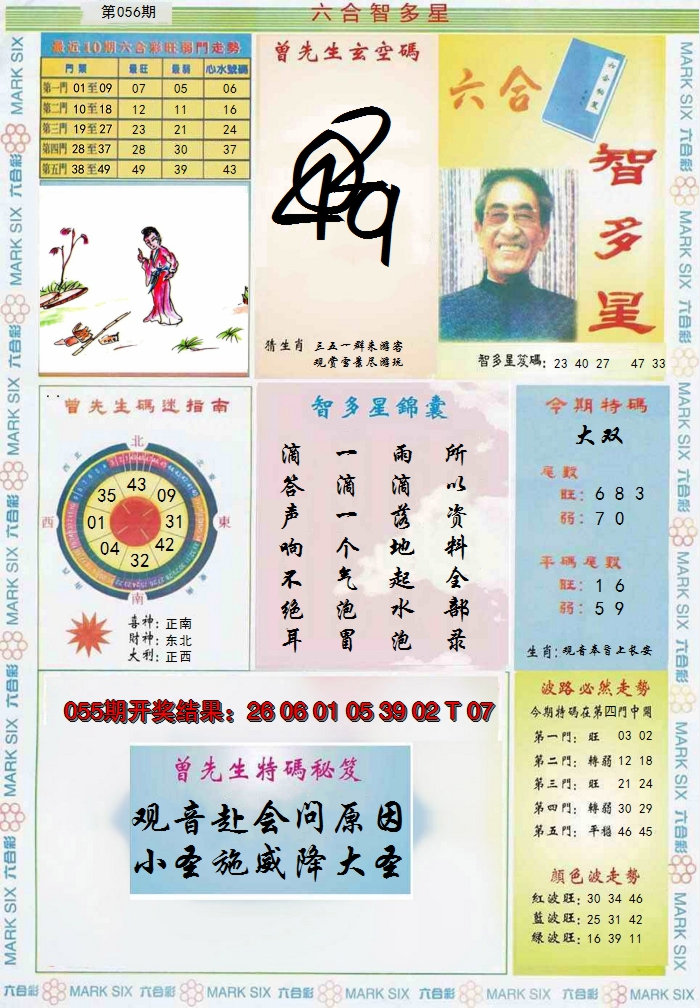 第056期
六合智多星
最近10期六合彩旺弱門走勢
門類 最旺 最弱 心水號碼
第一門 01至09 07 05 06
第二門 10至18 12 11 16
第三門 19至27 23 21 24
第四門 28至37 28 30 37
第五門 38至49 49 39 43
曾先生玄空碼
猜生肖 三五一群来游客
观赏雪景尽游玩
六合
智多星
智多星笈碼: 23 40 27 47 33
曾先生碼迷指南
北
西
東
南
43
09
31
42
32
04
01
35
喜神: 正南
财神: 东北
大利: 正西
智多星錦囊
所以资料全部录
雨滴落地起水泡
一滴一个气泡冒
滴答声响不绝耳
今期特碼
大双
尾數
旺: 6 8 3
弱: 7 0
平碼尾數
旺: 1 6
弱: 5 9
生肖: 观音奉旨上长安
055期开奖结果：26 06 01 05 39 02 T 07
曾先生特碼秘笈
观音赴会问原因
小圣施威降大圣
波路必然走勢
今期特碼在第四門中開
第一門: 旺 03 02
第二門: 轉弱 12 18
第三門: 旺 21 24
第四門: 轉弱 30 29
第五門: 平穩 46 45
顔色波走勢
紅波旺: 30 34 46
藍波旺: 25 31 42
綠波旺: 16 39 11
MARK SIX 六合彩